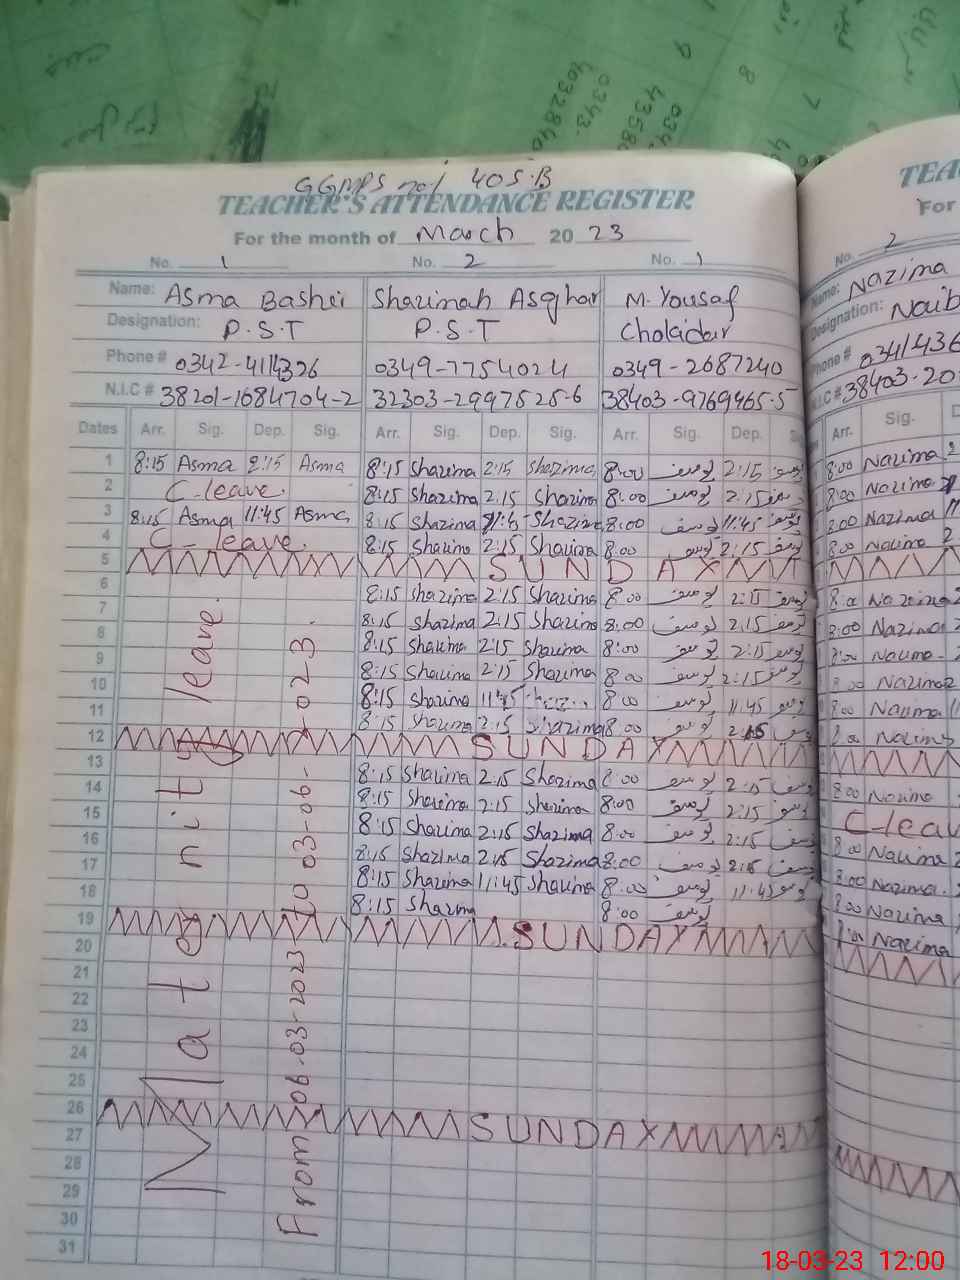 GGMPS no1 405.B
TEACHER'S ATTENDANCE REGISTER
For the month of March 2023
No. 1 No. 2 No. 1
Name: Asma Bashir Shazimah Asghar M. Yousaf
Designation: P.S.T P.S.T Chokidar
Phone # 0342-4114326 0349-7754024 0349-2687240
N.I.C # 38201-1684704-2 32303-2997525-6 38403-9769465-5
Dates Arr. Sig. Dep. Sig. Arr. Sig. Dep. Sig. Arr. Sig. Dep.
1 8:15 Asma 2:15 Asma 8:15 Shazima 2:15 Shazima 8:00 یوسف 2:15 یوسف
2 C-leave. 8:15 Shazima 2:15 Shazima 8:00 یوسف 2:15 یوسف
3 8:15 Asma 11:45 Asma 8:15 Shazima 11:45 Shazima 8:00 یوسف 11:45 یوسف
4 C-leave. 8:15 Shazima 2:15 Shazima 8:00 یوسف 2:15 یوسف
5 SUNDAY
6 8:15 Shazima 2:15 Shazima 8:00 یوسف 2:15 یوسف
7 8:15 Shazima 2:15 Shazima 8:00 یوسف 2:15 یوسف
8 8:15 Shazima 2:15 Shazima 8:00 یوسف 2:15 یوسف
9 8:15 Shazima 2:15 Shazima 8:00 یوسف 2:15 یوسف
10 8:15 Shazima 11:45 8:00 یوسف 11:45 یوسف
11 8:15 Shazima 2:15 Shazima 8:00 یوسف 2:15
12 SUNDAY
13 8:15 Shazima 2:15 Shazima 8:00 یوسف 2:15 یوسف
14 8:15 Shazima 2:15 Shazima 8:00 یوسف 2:15 یوسف
15 8:15 Shazima 2:15 Shazima 8:00 یوسف 2:15 یوسف
16 8:15 Shazima 2:15 Shazima 8:00 یوسف 2:15 یوسف
17 8:15 Shazima 11:45 Shazima 8:00 یوسف 11:45 یوسف
18 8:15 Shazima 8:00 یوسف
19 SUNDAY
20
21
22
23
24
25
26 SUNDAY
27
28
29
30
31
Maternity leave.
From 06-03-2023 to 03-06-2023.
TEAC
For
No. 2
Name: Nazima
Designation: Naib
Phone # 0341436
N.I.C # 38403-20
Arr. Sig.
8:00 Nazima
8:00 Nazima
8:00 Nazima
8:00 Nazima
8:00 Nazima
8:00 Nazima
8:00 Nazima
8:00 Nazima
8:00 Nazima
8:00 Nazima
8:00 Nazima
C-leav
8:00 Nazima
8:00 Nazima
8:00 Nazima
8:00 Nazima
18-03-23 12:00